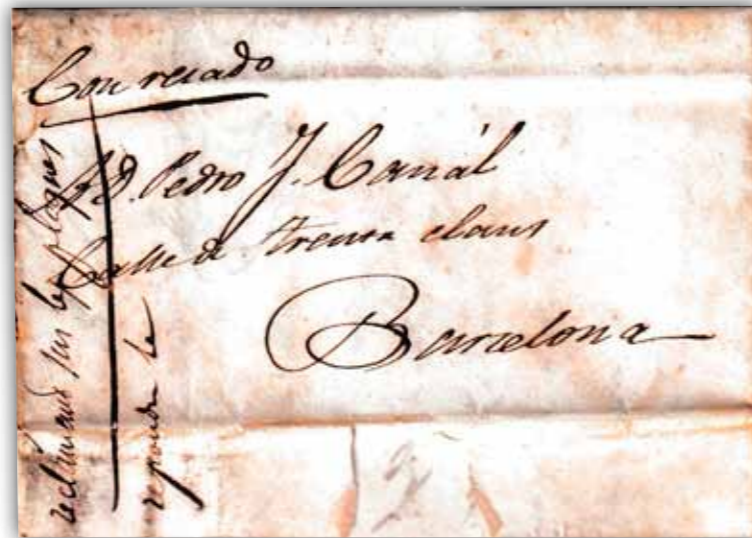 Con recado
A D. Pedro J. Canál
Calle de Trenca claus
Barcelona
reclamand sur les
reponde le